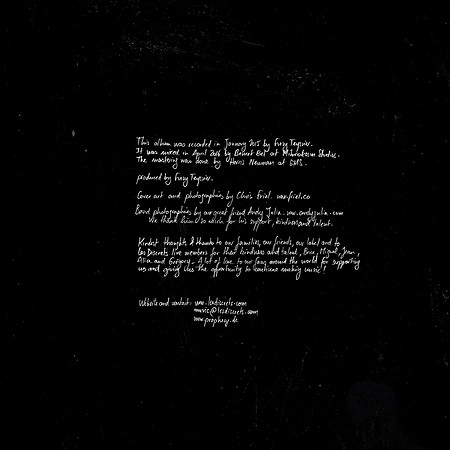 This album was recorded in January 2015 by Fursy Teyssier.
It was mixed in April 2016 by Benoit Bel at Mikrokosm Studios.
The mastering was done by Harris Newman at GMS.
produced by Fursy Teyssier.
Cover art and photographies by Chris Friel. www.friel.co
Band photographies by our great friend Andy Julia. www.andyjulia.com
We thank him so much for his support, kindness and talent.
Kindest thoughts & thanks to our families, our friends, our label and to
Les Discrets live members for their kindness and talent,
Alicia and Grégory. A lot of love to our fans around the world for supporting
us and giving us the opportunity to continue making music!
Website and contact: www.lesdiscrets.com
music@lesdiscrets.com
www.prophecy.de